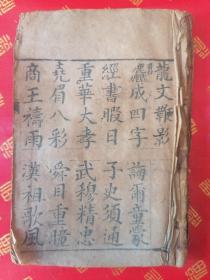 龍文鞭影
麤成四字 誨爾童蒙
經書暇日 子史須通
重華大孝 武穆精忠
堯眉八彩 舜目重瞳
商王禱雨 漢祖歌風